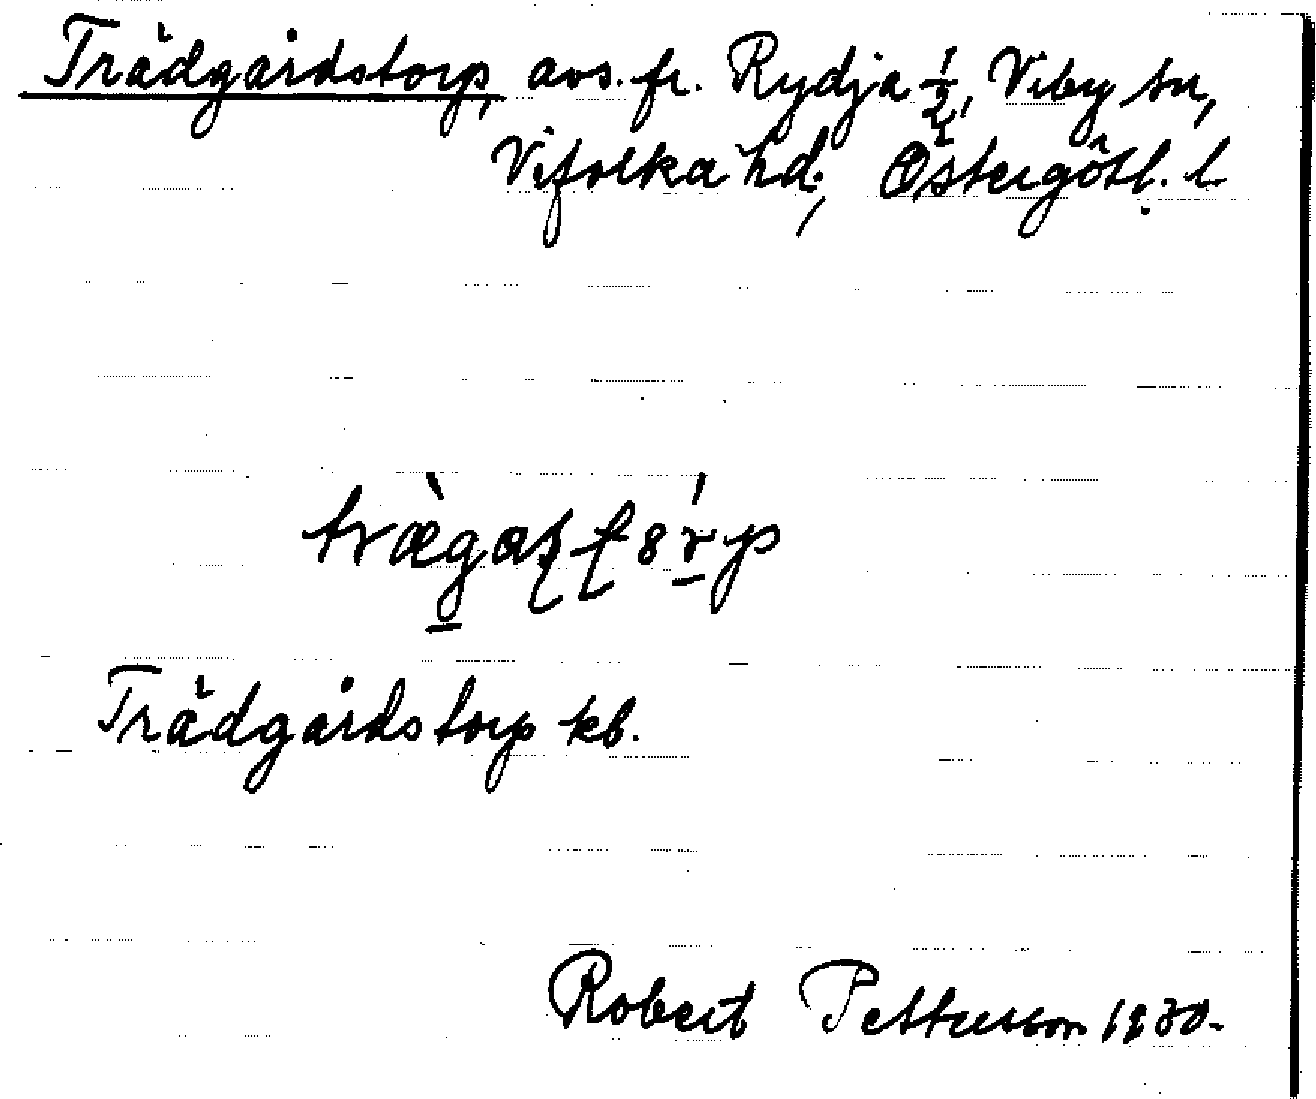 Trädgårdstorp, avs. fr. Rydja ½, Viby sn,
Vifolka hd., Östergötl. l.
Trädgårdstorp kb.
Robert Pettersson 1930.